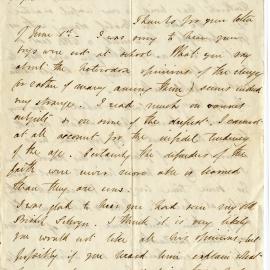 Thanks for your letter
of June 1st. I was sorry to hear your
boys were not at school. What you say
about the heterodox opinions of the clergy
(or rather of many among them) seems indeed
very strange. I read much on various
subjects & on none of the deepest. I cannot
at all account for the infidel tendency
of the age. Certainly the defenders of the
faith were never more able & learned
than they are now.
I was glad to hear you had seen my old
Bishop Selwyn. I think it is very likely
you would not like all his opinions, but
possibly if you heard him explain what